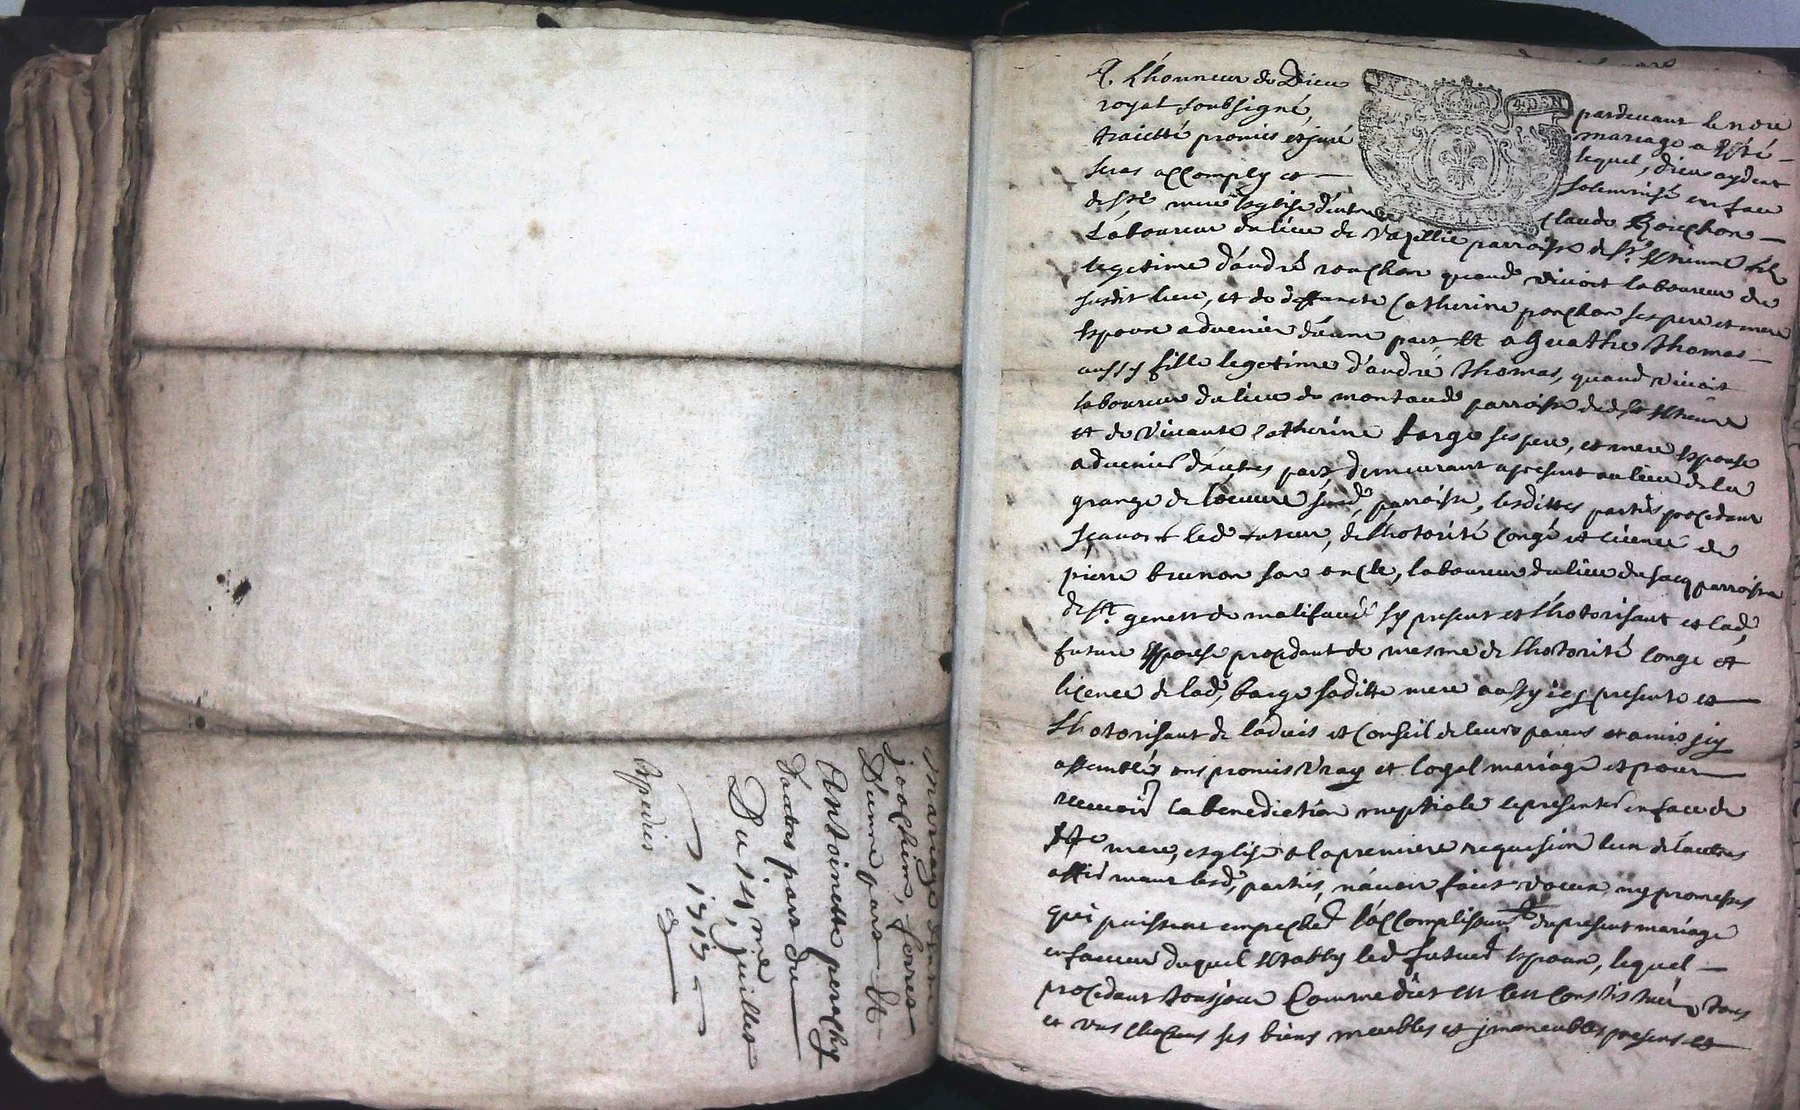 mariage entre
joachim, forrest
D'unne part Et
Antoinette perachy
D'autre part du
Du 14me juillet
1715
Expedié
A Lhonneur de Dieu pardevant le nore
royal soubsigné mariage a esté
traitté promis et juré lequel, dieu aydent
seras accomply et solemnisé en face
de Ste mere esglise d'entre Claude Rouchon
Laboureur du lieu de vazillie parroisse de St. Etienne fils
legitime d'andré rouchon quand vivoit laboureur du
susdit lieu, et de deffuncte Catherine ponchon ses pere et mere
Espoux advenir d'une part Et aguathe thomas
aussy fille legitime d'andré thomas, quand vivoit
laboureur du lieu de montaud parroisse dud St Etienne
et de vivante Catherine barge ses pere, et mere espouse
advenir d'autres part, demeurant apresent au lieu de la
grange de l'oeuvre susd. parroisse, lesdittes parties procedant
sçavoir led futeur, de lhotorité congé et licence de
pierre brunon son oncle, laboureur du lieu du sacq parroisse
de St. genest de malifaud sy present et lhotorisant et lad,
future Espouse procedant de mesme de lhotorité congé et
licence de lad, barge saditte mere aussy icy presente et
lhotorisant de ladvis et Conseil de leurs parens et amis icy
assemblés ont promis vray et loyal mariage et pour
recevoir la benediction nuptiale se presenter en face de
Ste mere, esglise a la premiere requision lun de lautres
affirmant lesd, parties, n'avoir faict voeux ny promesses
qui puissent empecher l'accomplissemt du present mariage
en faveur duquel Estably led futeur Espoux, lequel
procedant tousjour Comme dict est sest Constitué tous
et uns chacuns ses biens meubles et jmmeubles presens et